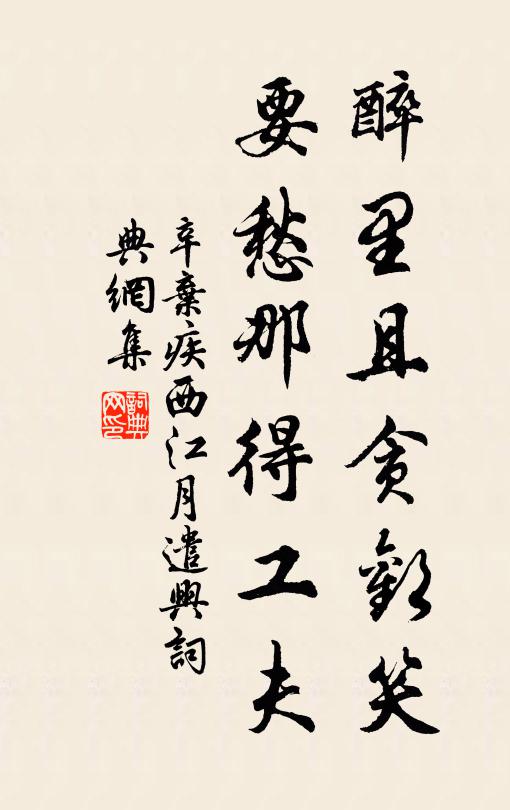 醉里且貪歡笑
要愁那得工夫
辛棄疾西江月遣興詞
典網集
詞典
网印